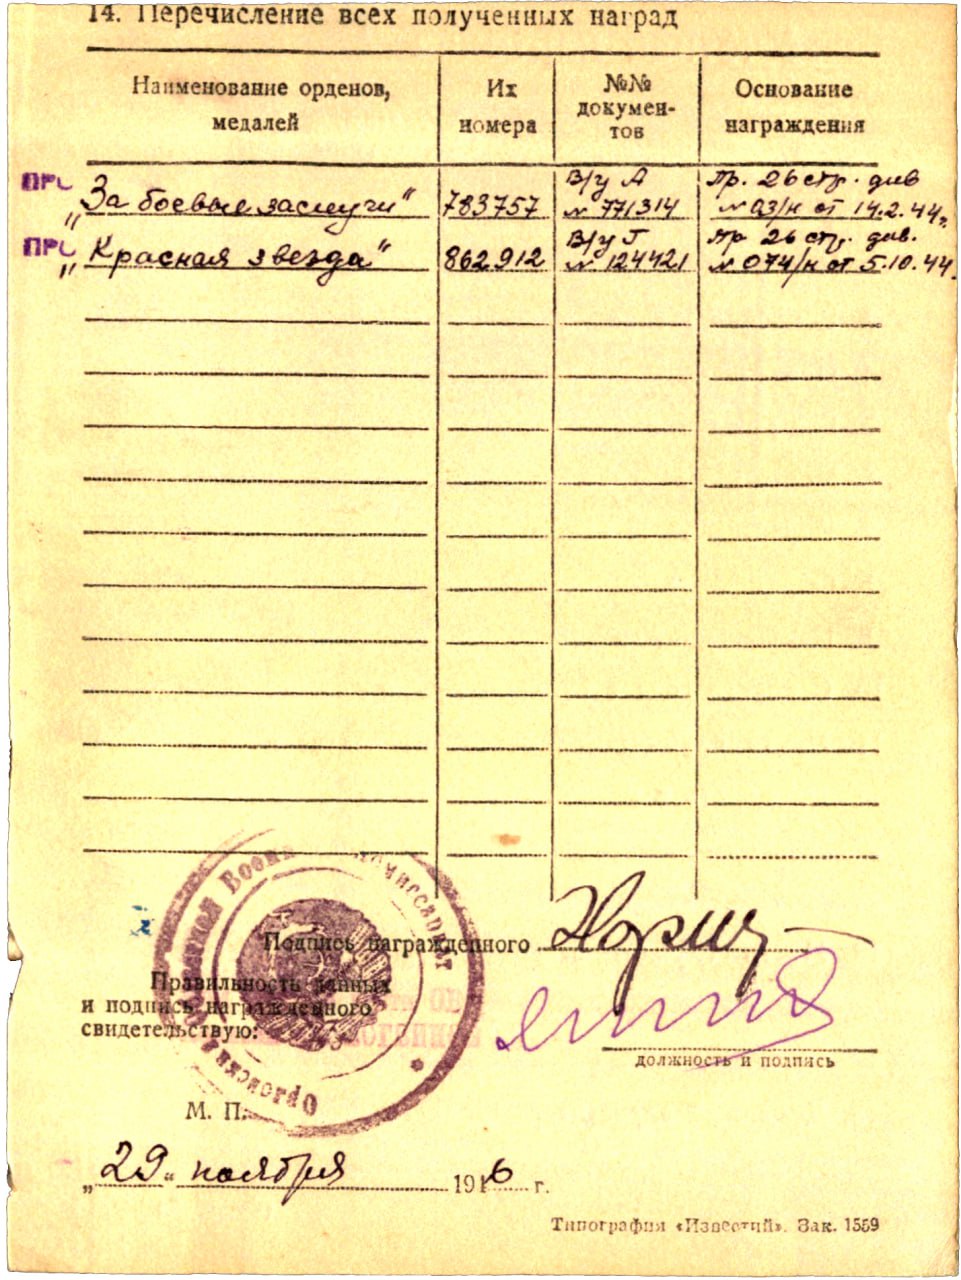 14. Перечисление всех полученных наград
Наименование орденов,
медалей
Их
номера
№№
докумен-
тов
Основание
награждения
„За боевые заслуги“
783757
В/у А
№ 771314
пр. 26 стр. див
№ 03/н от 14.2.44г.
„Красная звезда“
862912
В/у Г
№ 124421
пр 26 стр. див.
№ 074/н от 5.10.44.
Подпись награжденного
Правильность данных
и подпись награжденного
свидетельствую:
должность и подпись
М. П.
„29“ ноября 1946 г.
Типография «Известий». Зак. 1559